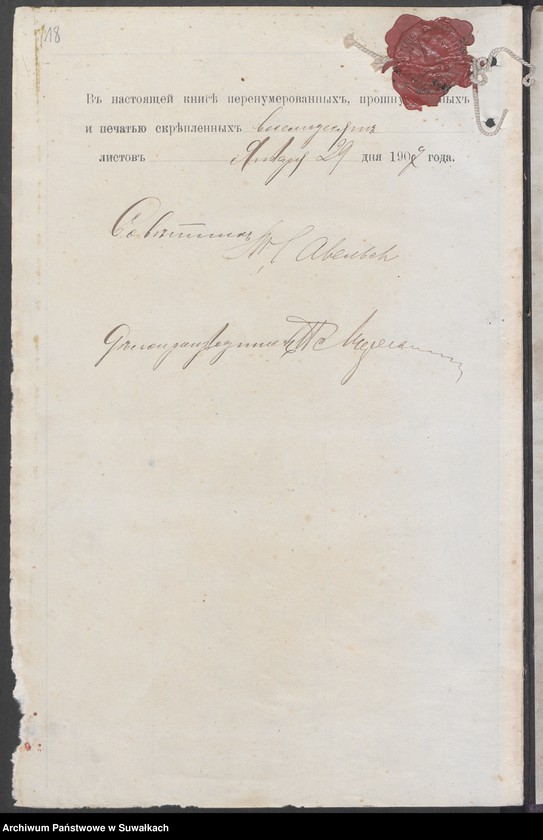 118
Въ настоящей книгѣ перенумерованныхъ, прошну ныхъ
и печатью скрѣпленныхъ восемьдесятъ
листовъ Января 29 дня 1909 года.
Совѣтникъ
Дѣлопроизводитель
Archiwum Państwowe w Suwałkach